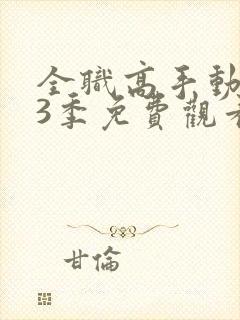 全職高手動
3季免費觀
甘倫